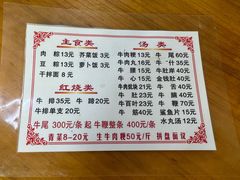 主食类 汤类
肉粽13元 芥菜饭3元 牛肉粳15元 牛尾60元
豆粽13元 萝卜饭3元 牛肉丸16元 牛什35元
干拌面8元 牛腩18元 牛肚岸40元
牛心15元 金钱肚40元
红烧类 牛肉 21元 牛舌40元
牛排35元 牛蹄20元 牛肚23元 牛筋40元
牛排单支20元 牛百叶23元 牛鞭70元
牛筋40元 鲨鱼片15元
水丸汤12元
牛尾300元/条起 牛鞭整条400元/条
青菜8-20元 生牛肉粳50元/斤 拼盘面议